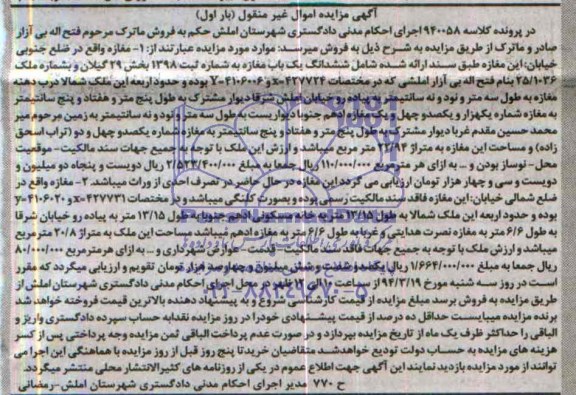 آگهی مزایده اموال غیر منقول (بار اول)
در پرونده کلاسه ۹۴۰۰۵۸ اجرای احکام مدنی دادگستری شهرستان املش حکم به فروش ماترک مرحوم فتح اله بی آزار
صادر و ماترک از طریق مزایده به شرح ذیل به فروش میرسد: موارد مورد مزایده عبارتند از: ۱- مغازه واقع در ضلع جنوبی
خیابان: این مغازه طبق سند ارائه شده شامل ششدانگ یک باب مغازه به شماره ثبت ۱۳۹۸ بخش ۲۹ گیلان و بشماره ملک
۲۵/۱۰۳۶ بنام فتح اله بی آزار املشی که در مختصات x=۴۲۷۷۲۴ و Y=۴۱۰۶۰۰۶ بوده و حدود اربعه این ملک شمالا درب دهنه
مغازه به طول سه متر و نود و نه سانتیمتر به پیاده رو خیابان املش شرقا دیوار مشترک به طول پنج متر و هفتاد و پنج سانتیمتر
به مغازه شماره یکهزار و یکصدو چهل و یک مغازه ادهم جنوبا دیواریست به طول سه متر و نود و نه سانتیمتر به زمین مرحوم میر
محمد حسین مقدم غربا دیوار مشترک به طول پنج متر و هفتاد و پنج سانتیمتر به مغازه شماره یکصدو چهل و دو (تراب اسحق
زاده) و مساحت این مغازه به متراژ ۲۲/۹۴ متر مربع میباشد و ارزش این ملک با توجه به جمیع جهات سند مالکیت - موقعیت
محل - نوساز بودن و ... به ازای هر مترمربع ۱۱۰/۰۰۰/۰۰۰ ریال جمعا به مبلغ ۲/۵۲۳/۴۰۰/۰۰۰ ریال دویست و پنجاه دو میلیون و
دویست و سی و چهار هزار تومان ارزیابی می گردد این مغازه در حال حاضر در تصرف احدی از وراث میباشد. ۲- مغازه واقع در
ضلع شمالی خیابان: این مغازه فاقد سند مالکیت رسمی بوده و بصورت کلنگی میباشد و در مختصات x=۴۲۷۷۳۱ و y=۴۱۰۶۰۲۰
بوده و حدود اربعه این ملک شمالا به طول ۱۳/۱۵ متر به خانه مسکونی ادهم جنوبا به طول ۱۳/۱۵ متر به پیاده رو خیابان شرقا
به طول ۶/۶ متر به مغازه نصرت هدایتی و غربا به طول ۶/۶ متر به مغازه ادهم میباشد مساحت این ملک به متراژ ۲۰/۸ متر مربع
میباشد و ارزش ملک با توجه به جمیع جهات فاقد سند عوارض شهرداری و ... به ازای هر مترمربع ۸۰/۰۰۰/۰۰۰
ریال جمعا به مبلغ ۱/۶۶۴/۰۰۰/۰۰۰ ریال یکصد و شصت و شش میلیون و چهارصد هزار تومان تقویم و ارزیابی میگردد که مقرر
است در روز سه شنبه مورخ ۹۴/۳/۱۹ از ساعت ظهر در محل اجرای احکام مدنی دادگستری شهرستان املش از
طریق مزایده به فروش برسد مبلغ مزایده از قیمت کارشناسی شروع و به پیشنهاد دهنده بالاترین قیمت فروخته خواهد شد
برنده مزایده میبایست حداقل ده درصد از قیمت پیشنهادی خود را در روز مزایده نقدا به حساب سپرده دادگستری واریز و
الباقی را حداکثر ظرف یک ماه از تاریخ مزایده بپردازد و در صورت عدم پرداخت الباقی ثمن مزایده وجه پرداختی پس از کسر
هزینه های مزایده به حساب دولت تودیع خواهد شد متقاضیان خرید تا پنج روز قبل از روز مزایده با هماهنگی این اجرا می
توانند از مورد مزایده بازدید نمایند این آگهی جهت اطلاع عموم در یکی از روزنامه های کثیرالانتشار محلی منتشر میگردد.
ح ۷۷۰ مدیر اجرای احکام مدنی دادگستری شهرستان املش-رمضانی